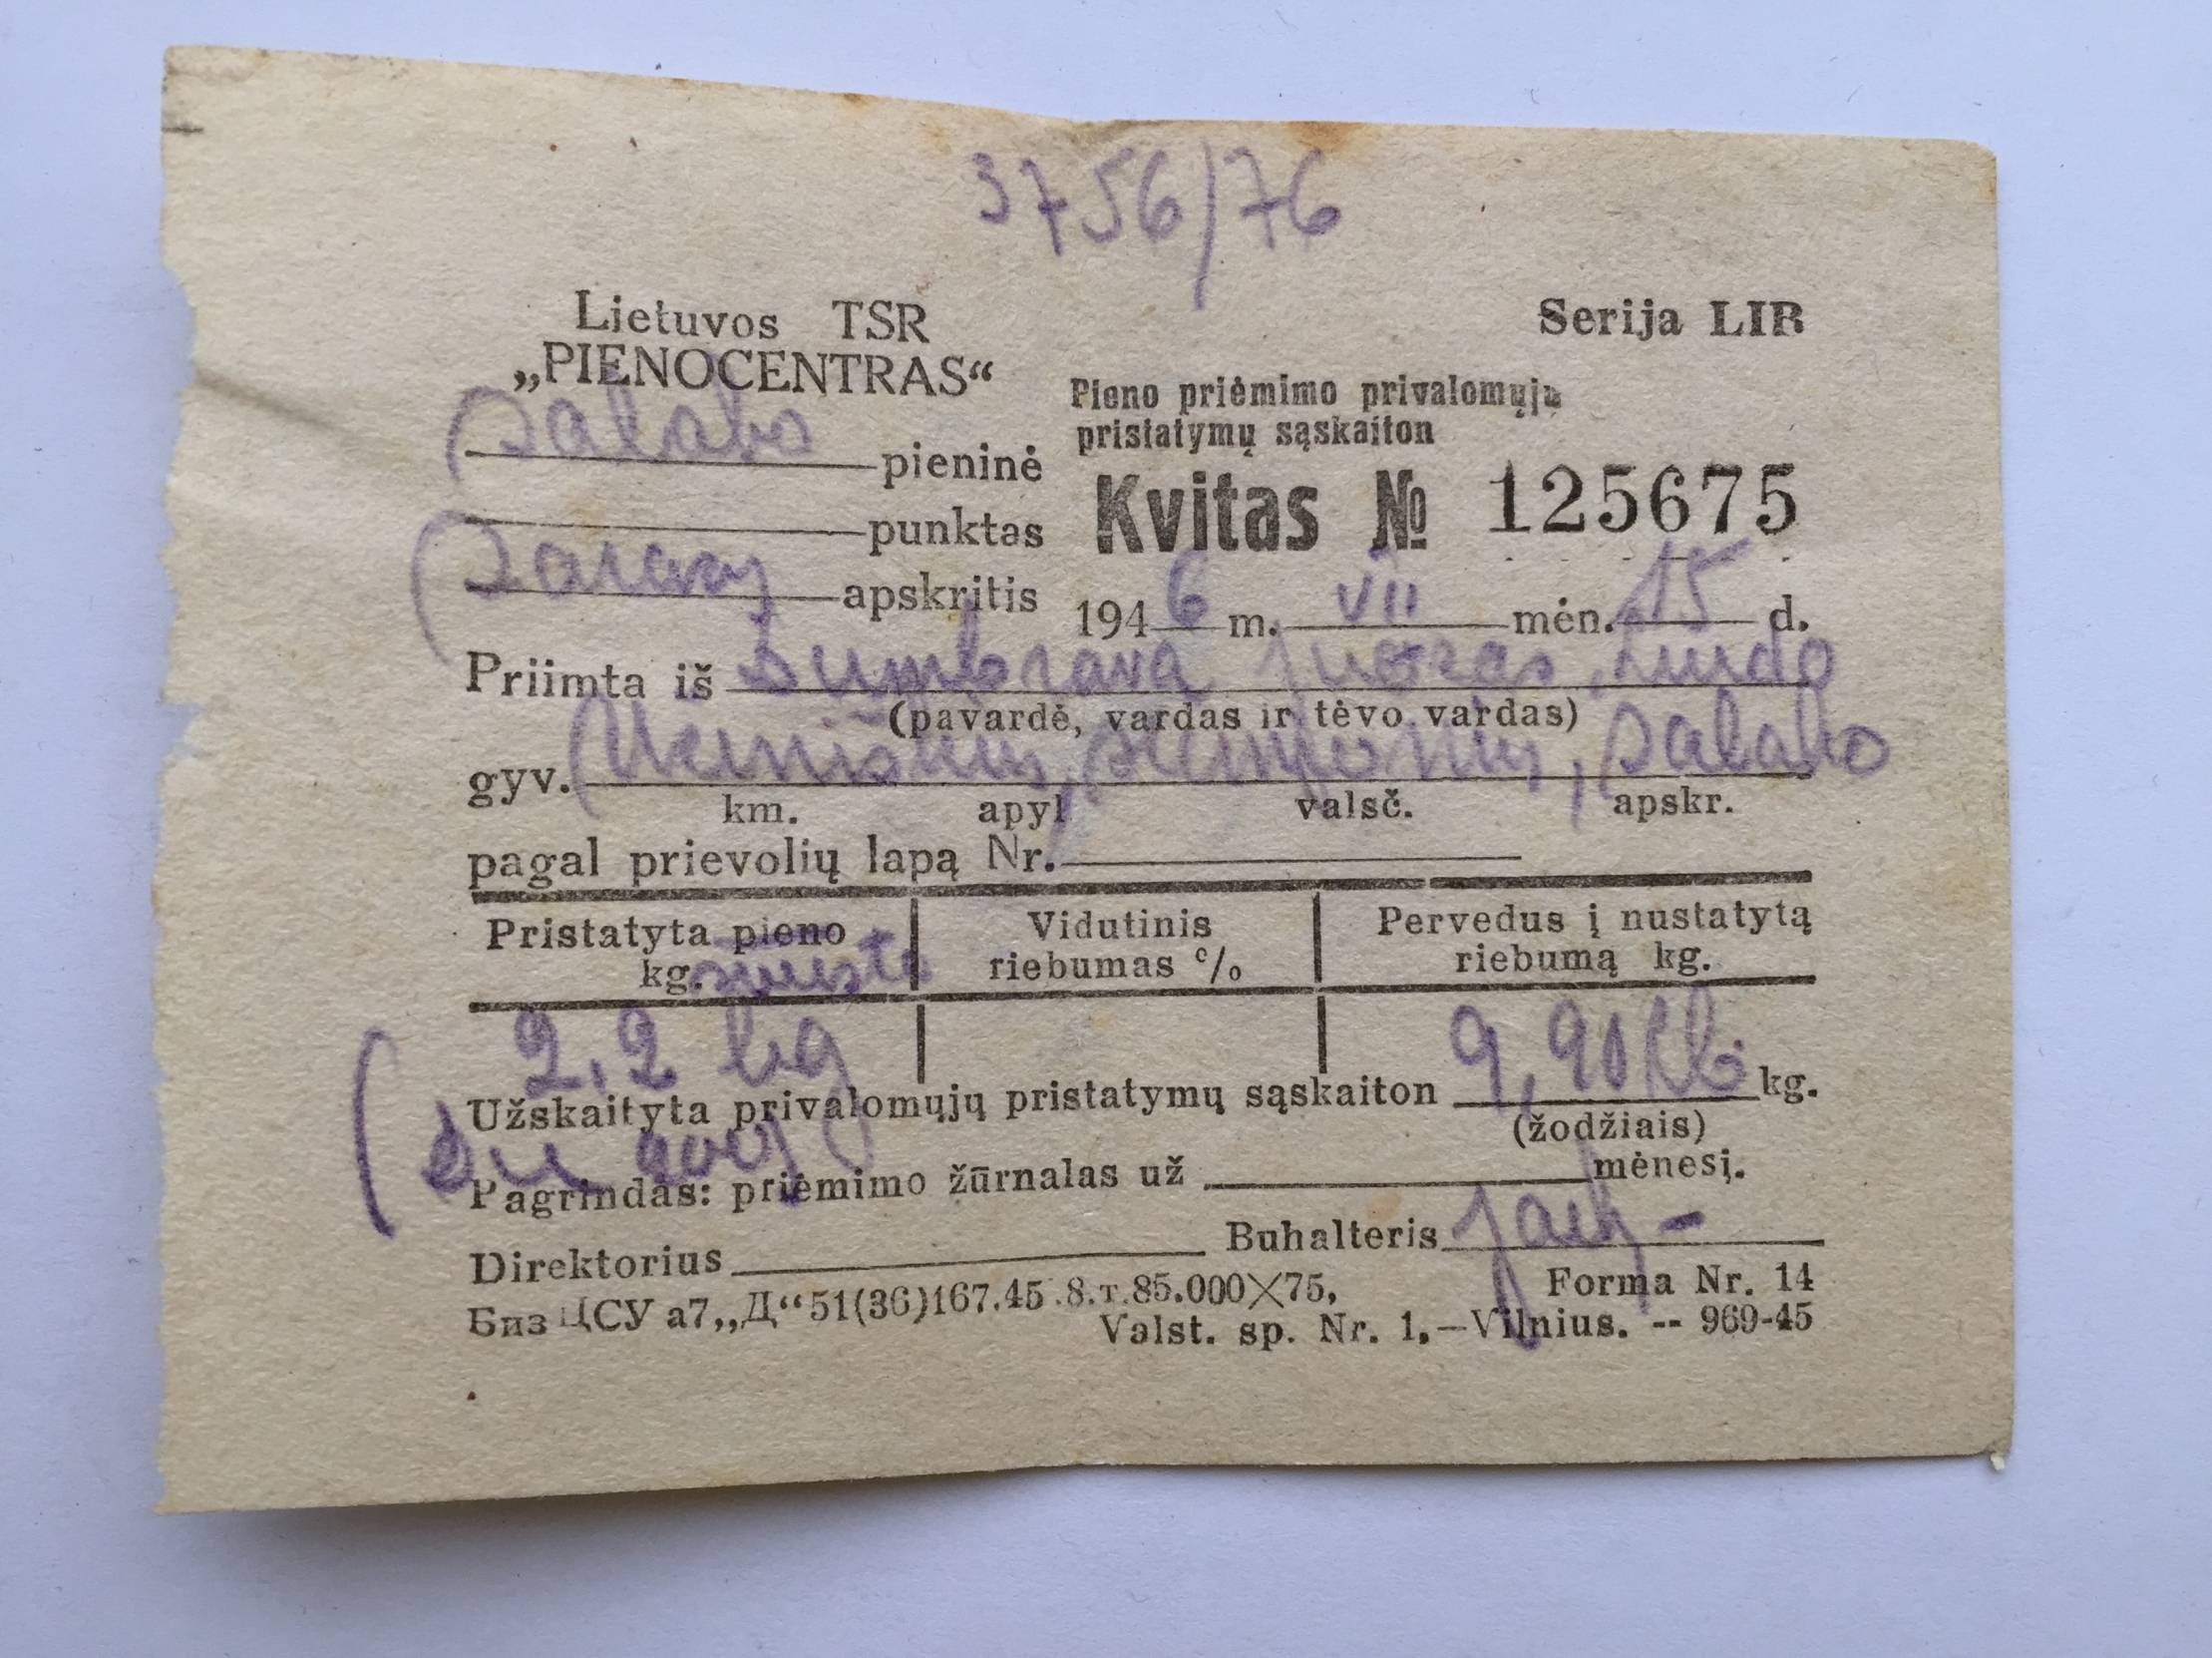 3756/76
Lietuvos TSR
„PIENOCENTRAS“
Serija LIB
Pieno priėmimo privalomųjų
pristatymų sąskaiton
Salako pieninė
Kvitas № 125675
punktas
Zarasų apskritis
1946 m. VII mėn. 15 d.
Priimta iš Dumbrava Juozas, Liudo
(pavardė, vardas ir tėvo vardas)
gyv. Salako
km. apyl valsč. apskr.
pagal prievolių lapą Nr.
Pristatyta pieno kg. sviesto
Vidutinis riebumas %
Pervedus į nustatytą riebumą kg.
2,2 kg
Užskaityta privalomųjų pristatymų sąskaiton 9,90 Rb kg.
(žodžiais)
Pagrindas: priėmimo žūrnalas už mėnesį.
Direktorius
Buhalteris
Биз ЦСУ а7„Д“51(36)167.45.8.т.85.000X75,
Forma Nr. 14
Valst. sp. Nr. 1.—Vilnius. -- 969-45